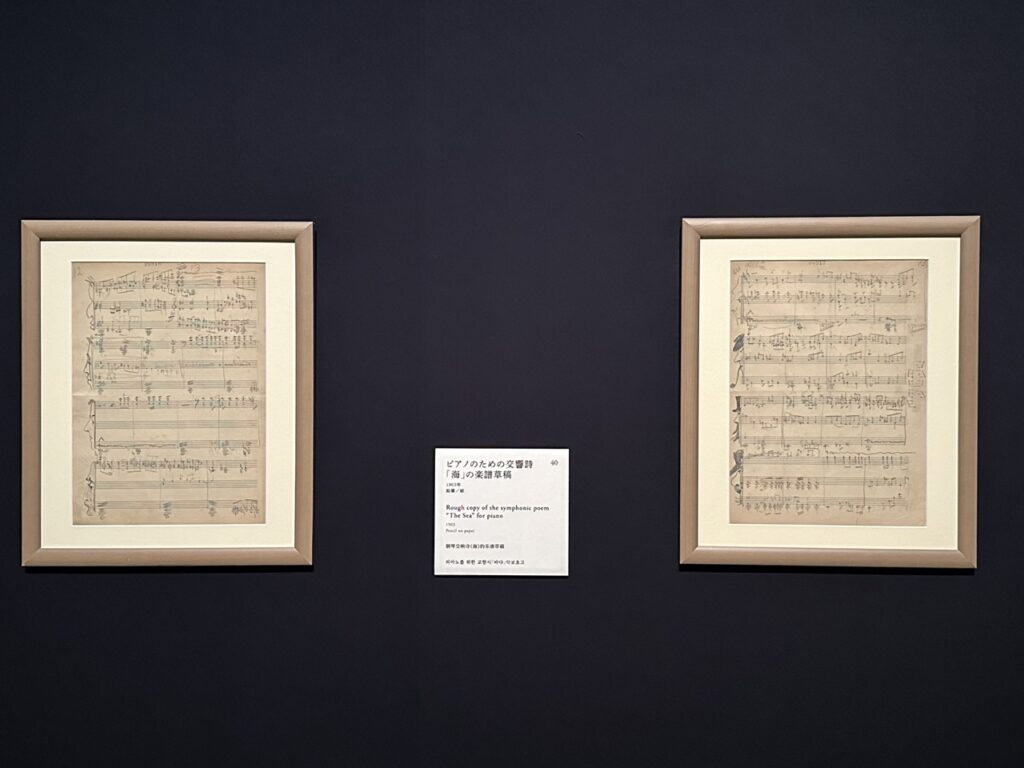 ピアノのための交響詩
「海」の楽譜草稿
40
1903年
鉛筆／紙
Rough copy of the symphonic poem
"The Sea" for piano
1903
Pencil on paper
钢琴交响诗《海》的乐谱草稿
피아노를 위한 교향시「바다」악보초고